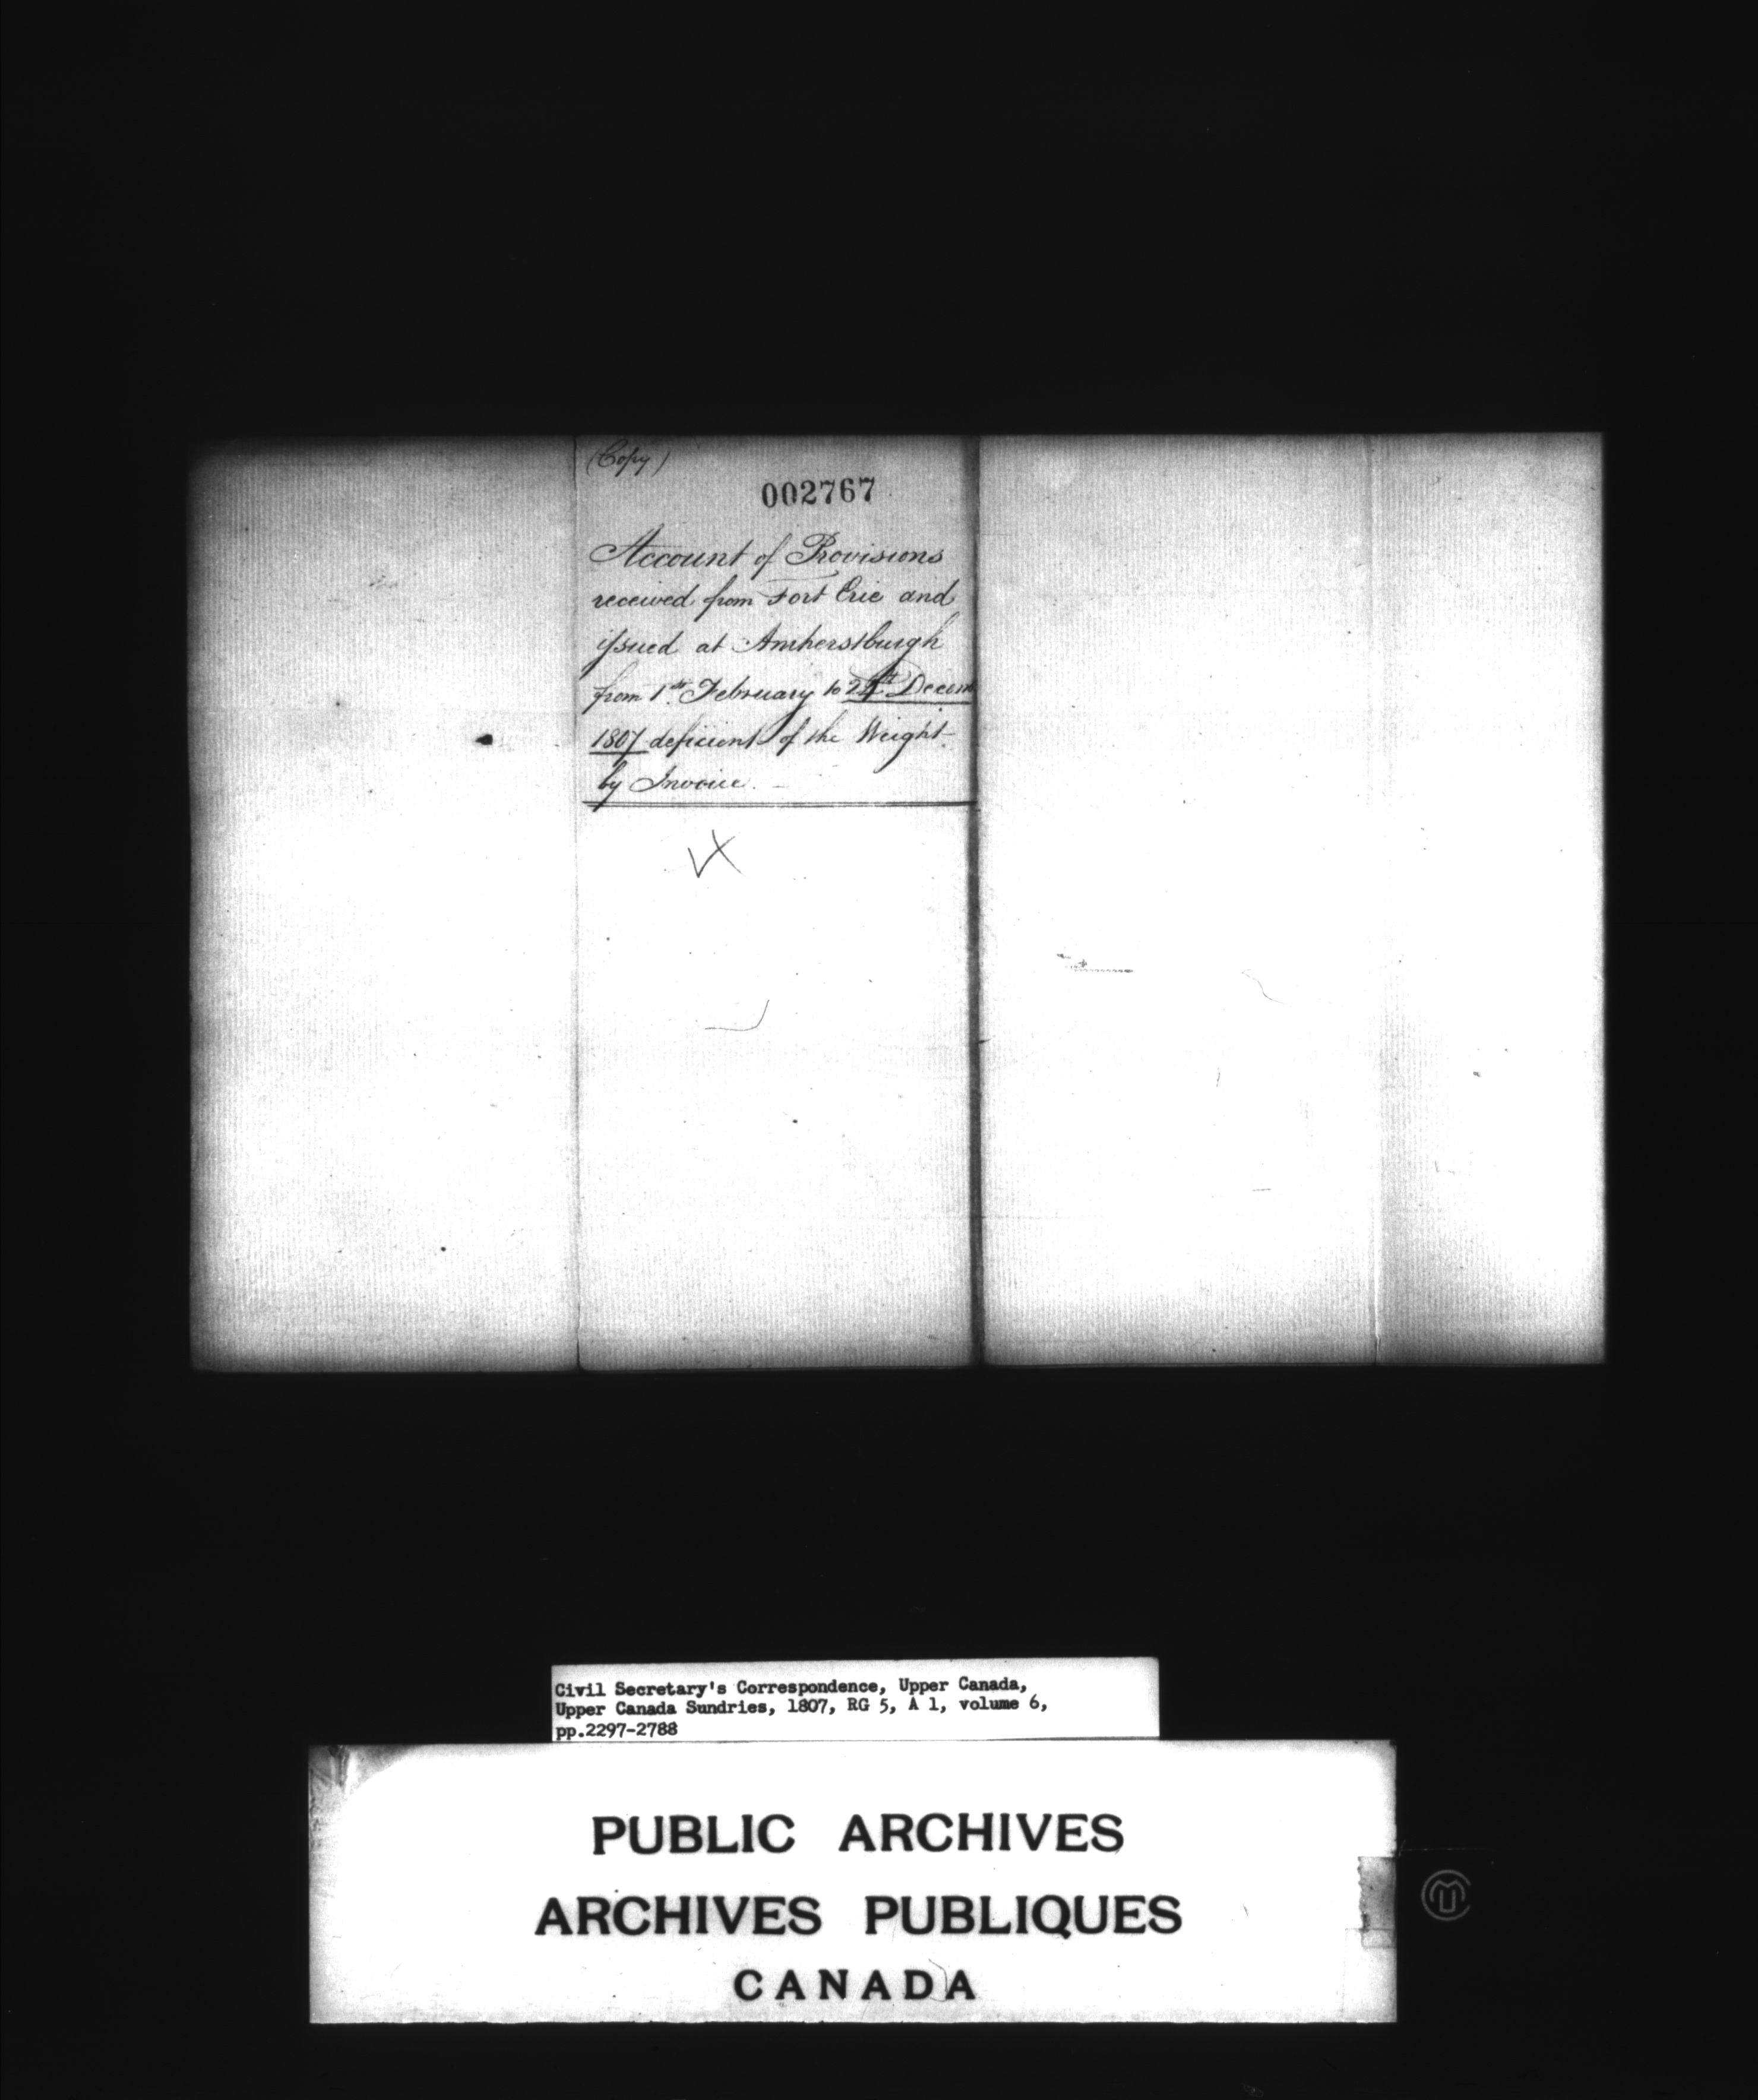 (Copy)
002767
Account of Provisions
received from Fort Erie and
issued at Amherstburgh
from 1st. February to Decem
1807 deficient of the Weight
by Invoice.
Civil Secretary's Correspondence, Upper Canada,
Upper Canada Sundries, 1807, RG 5, A 1, volume 6,
pp.2297-2788
PUBLIC ARCHIVES
ARCHIVES PUBLIQUES
CANADA